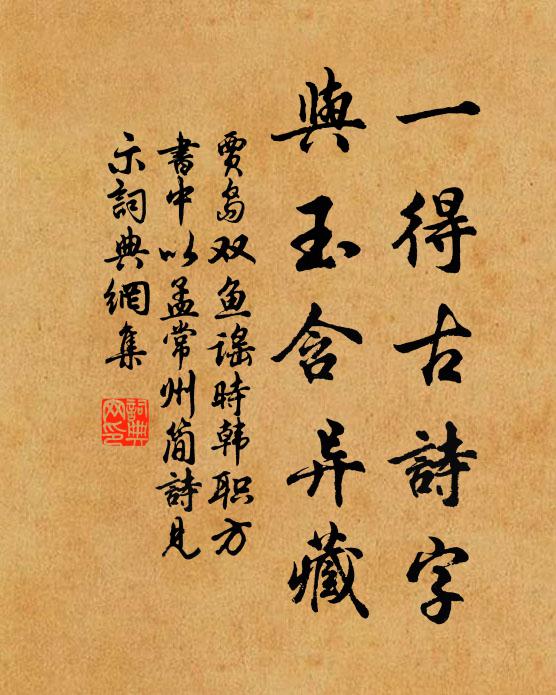 一得古詩字
與玉含异藏
賈島双魚谣時韩职方
書中以孟常州简詩見
示詞典網集
詞典網印